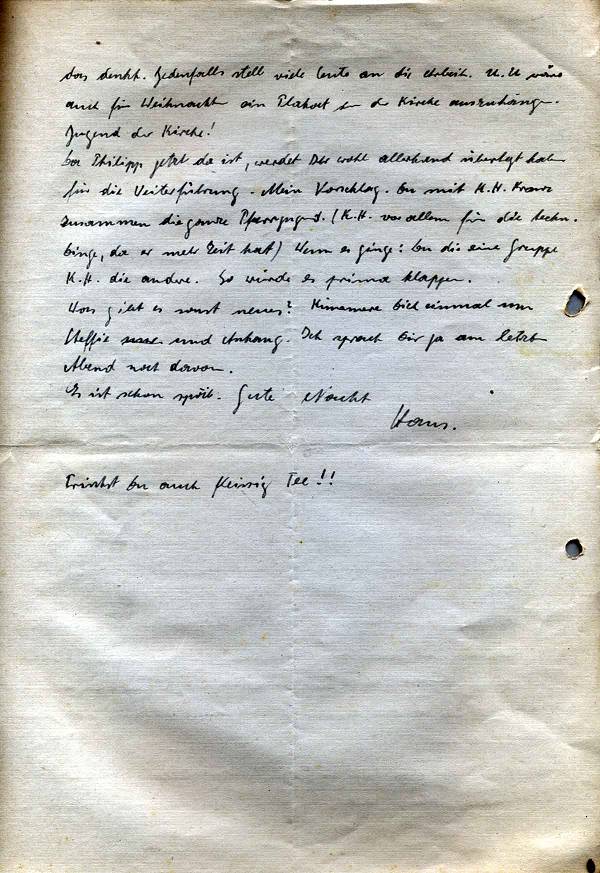 das denkt. Jedenfalls stell viele Leute an die Arbeit. U.U wäre
auch für Weihnacht ein Plakat in der Kirche auszuhängen.
Jugend der Kirche!
Da Philipp jetzt da ist, werdet Ihr wohl allerhand überlegt haben
für die Weiterführung. Mein Vorschlag. Du mit K.H. Kranz
zusammen die ganze Pfarrjugend. (K.H. vor allem für die techn.
Dinge, da er mehr Zeit hat) Wenn es ginge: Du die eine Gruppe
K.H. die andere. So würde es prima klappen.
Was gibt es sonst neues? Kümmere Dich einmal um
und Anhang. Ich sprach Dir ja am letzten
Abend noch davon.
Es ist schon spät. Gute Nacht
Hans.
Trinkst Du auch fleissig Tee!!